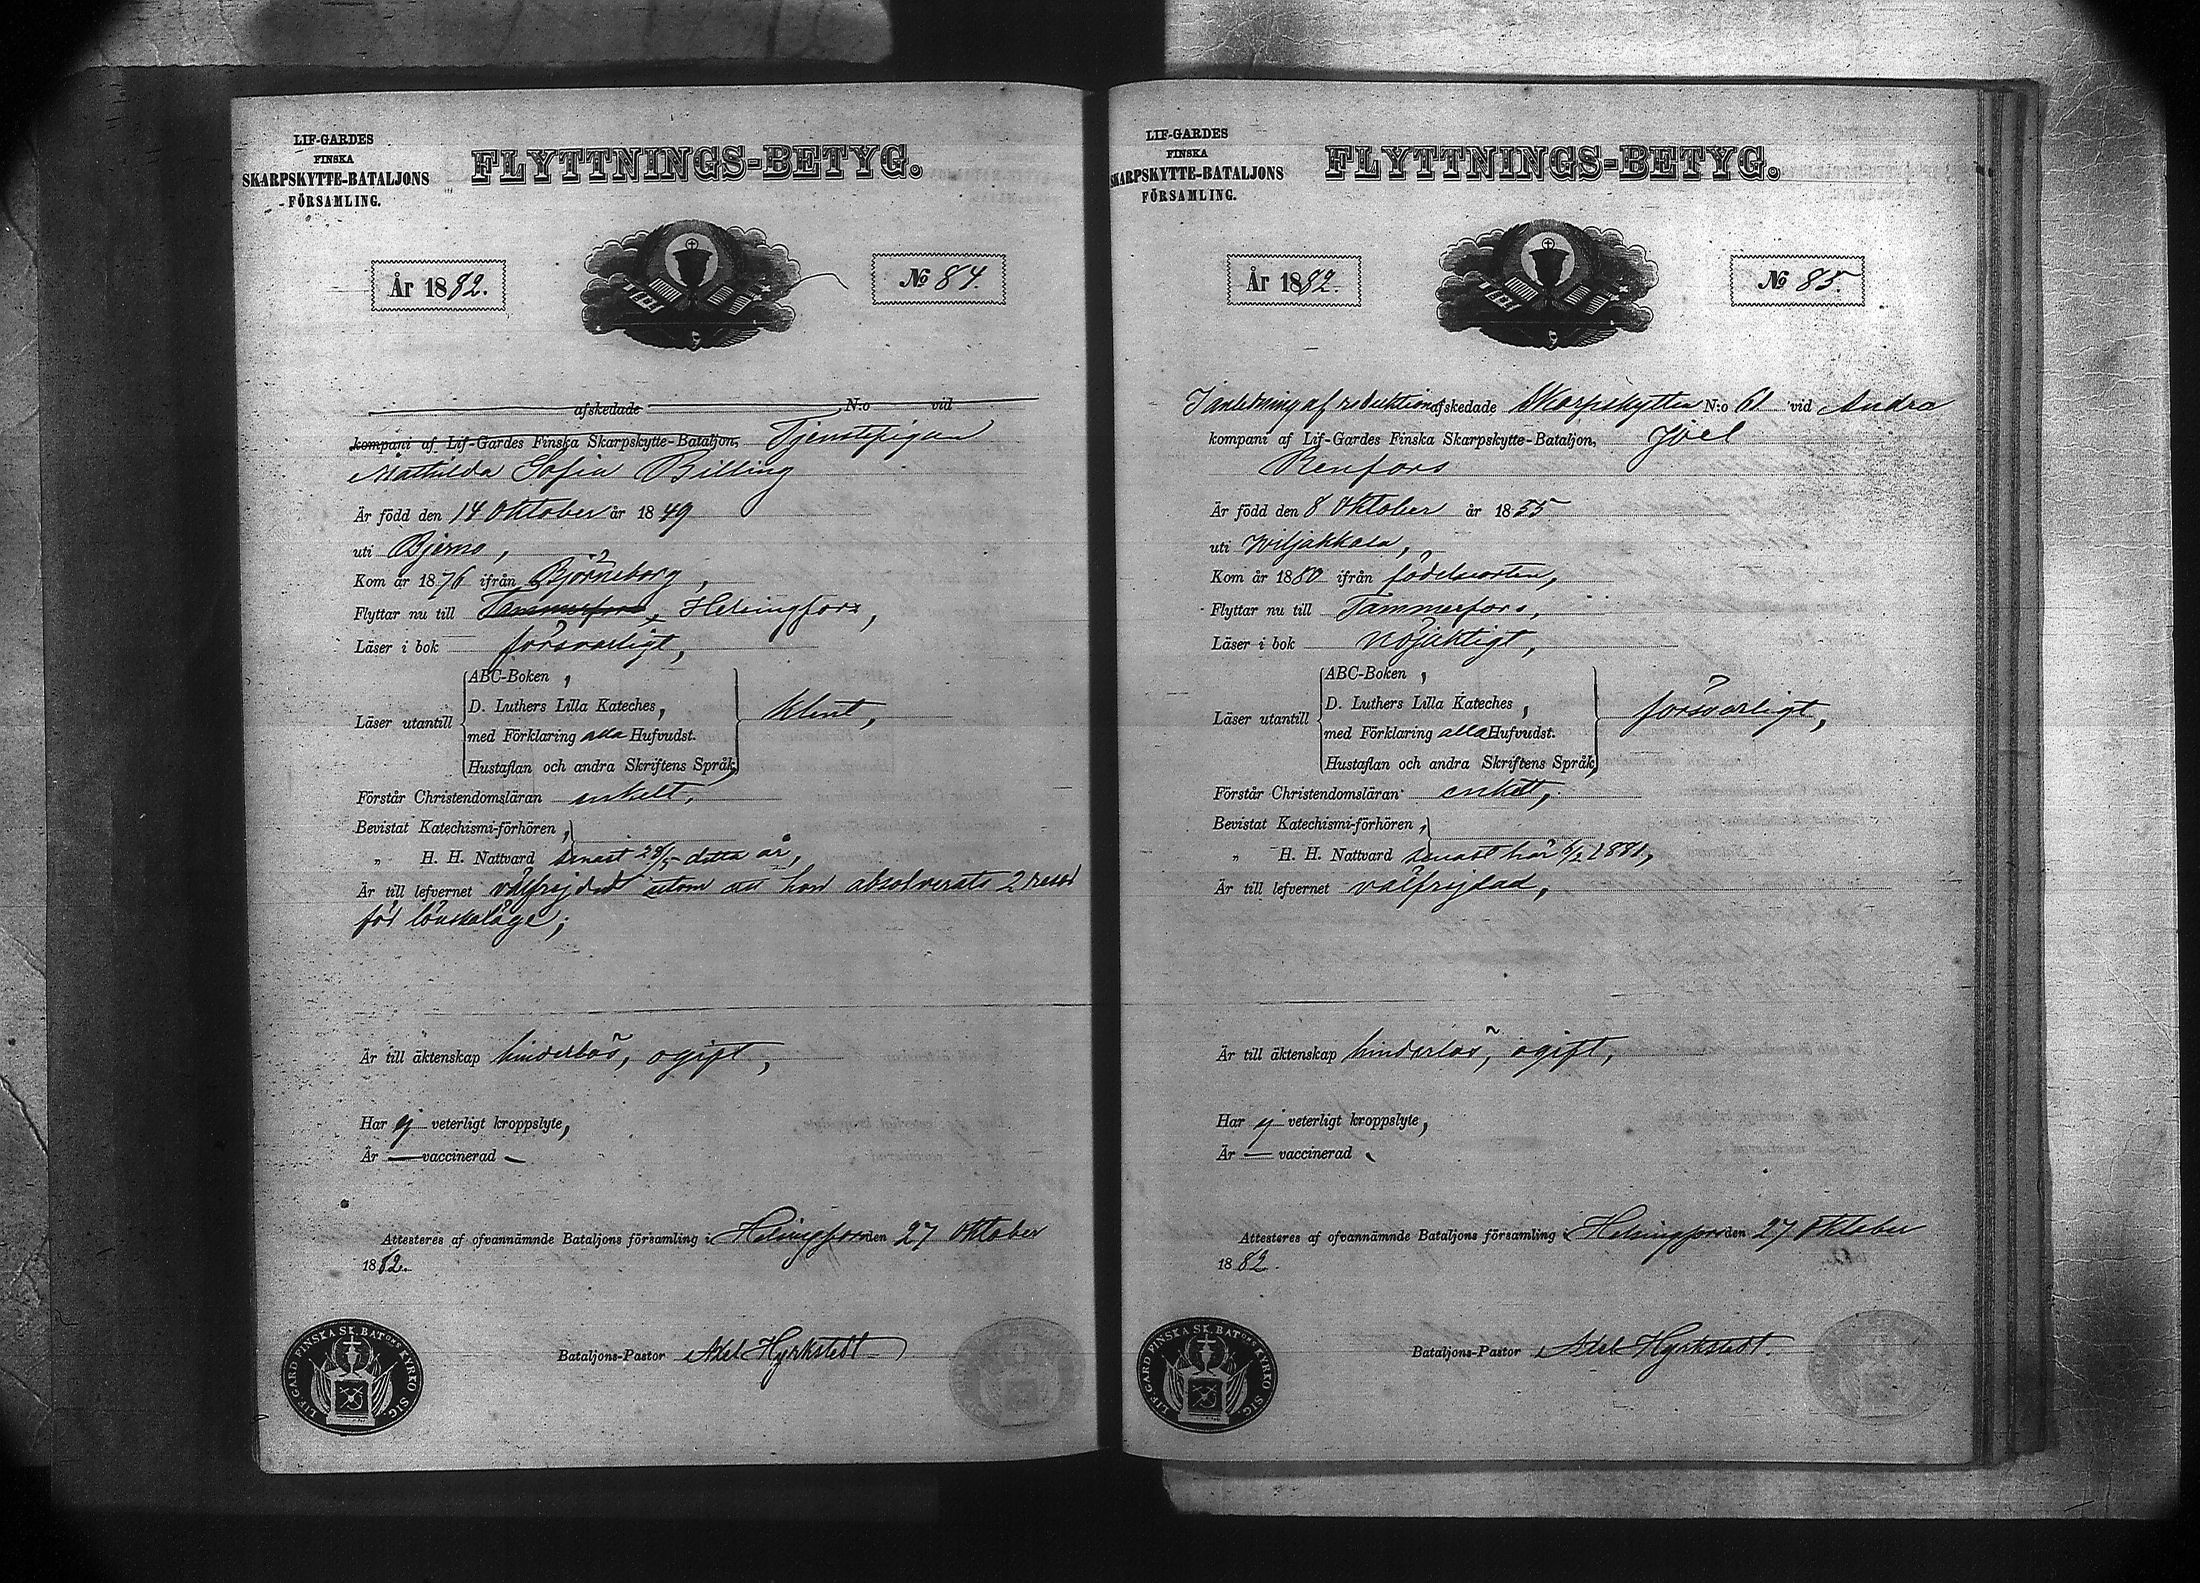 LIF-GARDES
FINSKA
SKARPSKYTTE-BATALJONS
FÖRSAMLING.
FLYTTNINGS-BETYG.
År 1882.
№ 84.
afskedade N:o vid
kompani af Lif-Gardes Finska Skarpskytte-Bataljon, Tjenstepigan
Mathilda Sofia Billing
Är född den 14 Oktober år 1849
uti Bjerno,
Kom år 1876 ifrån Björneborg,
Flyttar nu till Tammerfors, Helsingfors,
Läser i bok försvarligt,
Läser utantill
ABC-Boken,
D. Luthers Lilla Kateches,
med Förklaring alla Hufvudst.
Hustaflan och andra Skriftens Språk,
klent,
Förstår Christendomsläran enkelt,
Bevistat Katechismi-förhören,
„ H. H. Nattvard senast 28/5 detta år,
Är till lefvernet välfrejdad utom att hon absolverats 2 resor
för lönskaläge;
Är till äktenskap hinderlös, ogift,
Har ej veterligt kroppslyte,
Är — vaccinerad
Attesteres af ofvannämnde Bataljons församling i Helsingfors den 27 Oktober
1882.
Bataljons-Pastor Axel Hyrkstedt
LIF. GARD FINSKA SK. BATONS KYRKO SIG.
LIF-GARDES
FINSKA
SKARPSKYTTE-BATALJONS
FÖRSAMLING.
FLYTTNINGS-BETYG.
År 1882.
№ 85.
I anledning af reduktion afskedade Skarpskytten N:o 61 vid Andra
kompani af Lif-Gardes Finska Skarpskytte-Bataljon, Joel
Renfors
Är född den 8 Oktober år 1855
uti Wiljakkala,
Kom år 1880 ifrån födelseorten,
Flyttar nu till Tammerfors,
Läser i bok nöjaktigt,
Läser utantill
ABC-Boken,
D. Luthers Lilla Kateches,
med Förklaring alla Hufvudst.
Hustaflan och andra Skriftens Språk,
försvarligt,
Förstår Christendomsläran enkelt,
Bevistat Katechismi-förhören,
„ H. H. Nattvard senast här 1881,
Är till lefvernet välfrejdad,
Är till äktenskap hinderlös, ogift,
Har ej veterligt kroppslyte,
Är — vaccinerad
Attesteres af ofvannämnde Bataljons församling i Helsingfors den 27 Oktober
1882.
Bataljons-Pastor Axel Hyrkstedt.
LIF. GARD FINSKA SK. BATONS KYRKO SIG.